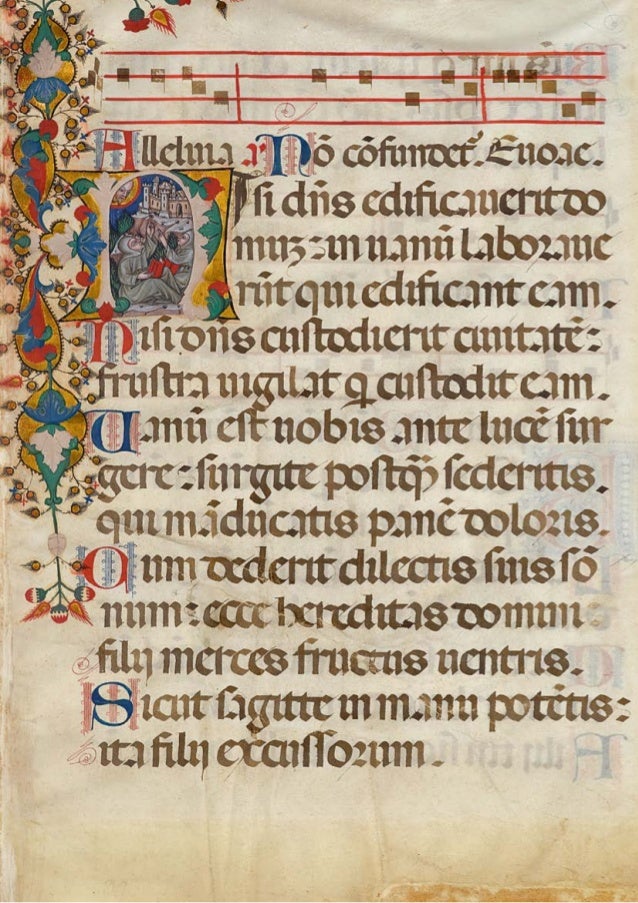 Alleluia. a. Nō cōfundet̄. Euoae.
Nisi dn̄s edificauerit do
muz: in uanū laboraue
rūt qui edificant eam.
Nisi dn̄s custodierit ciuitatē:
frustra uigilat q custodit eam.
Uanū est uobis ante lucē sur
gere: surgite postq̄ sederitis,
qui māducatis panē doloris.
Cum dederit dilectis suis sō
num: ecce hereditas domini
filij merces fructus uentris.
Sicut sagitte in manu potētis:
ita filij excussorum.